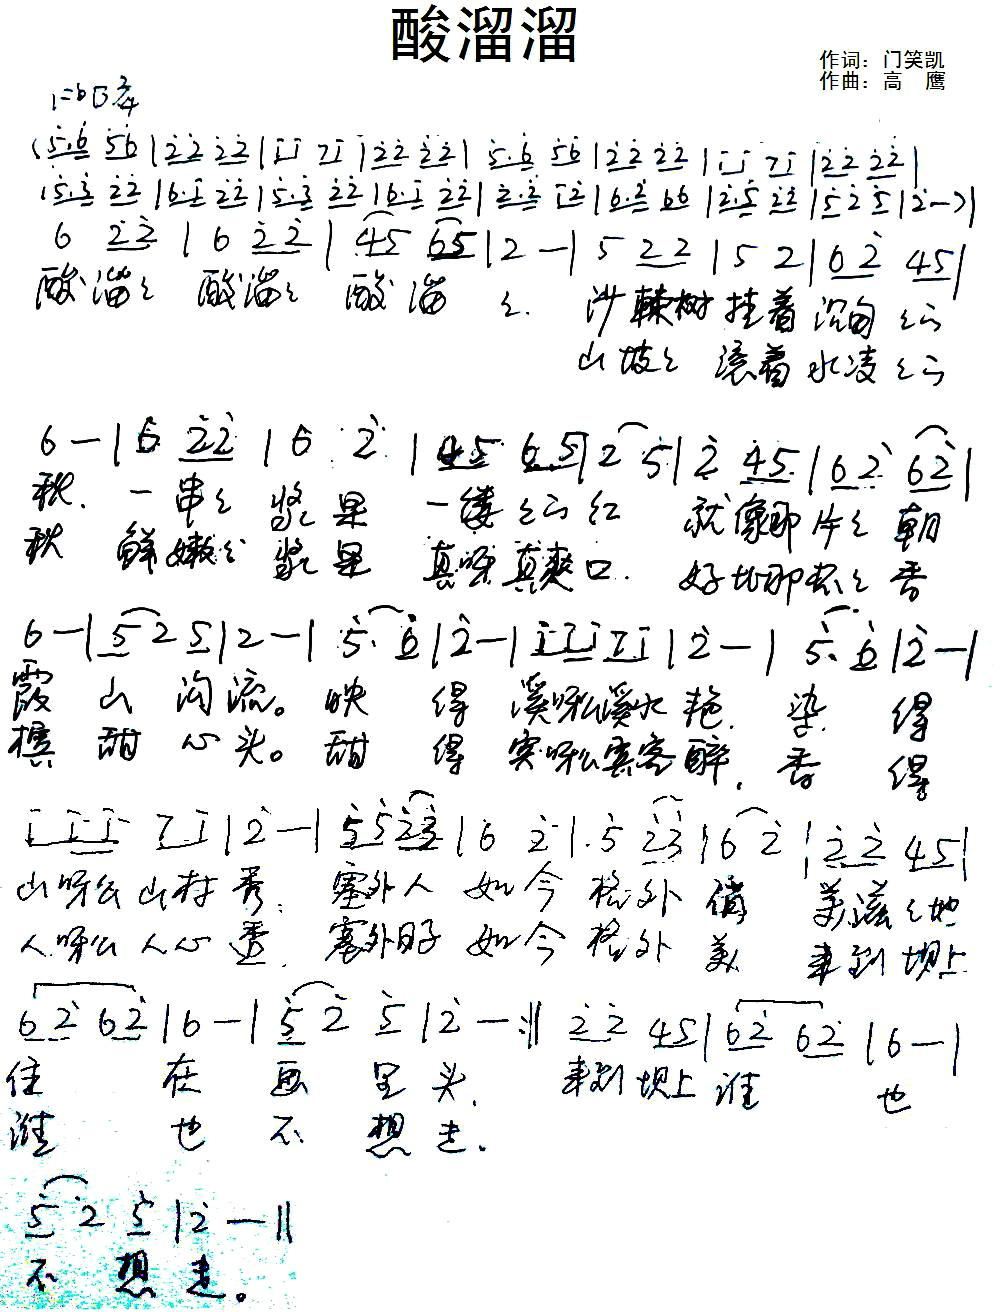 酸溜溜
作词：门笑凯
作曲：高 鹰
1=bB 2/4
(5.6 56|22 22|11 71|22 22| 5.6 56|22 22|11 71|22 22|
5.3 22|6.1 22|5.3 22|6.1 22|2.2 12|6.2 66|2.5 22|5 2 5|2-)|
6 22|6 22|45 65|2 -|5 22|5 2|62 45|
酸溜々 酸溜々 酸溜 々. 沙棘树 挂着 沉甸々
山坡々 滚着 水凌々
6 -|6 22|6 2|45 65|2 5|2 45|62 62|
秋. 一串々 浆果 一缕々 红 就像那片々 朝
秋 鲜嫩々 浆果 真呀真爽口. 好比那杯々 香
6 -|5 2 5|2 -|5. 6|2 -|111 71|2 -|5. 6|2 -|
霞 山 沟流。映 得 溪呀么溪水 艳. 染 得
槟 甜 心头。甜 得 宾呀么宾客 醉, 香 得
111 71|2 -|5523|6 2|5 23|6 2|22 45|
山呀么山村 秀. 塞外人 如今 格外 俏 美滋々地
人呀么人心 透. 塞外日子 如今 格外 美 来到坝上
62 62|6 -|5 2 5|2 -:|| 22 45|62 62|6 -|
住 在 画 里 头. 来到坝上 谁 也
谁 也 不 想 走.
5 2 5|2 -||
不 想 走。